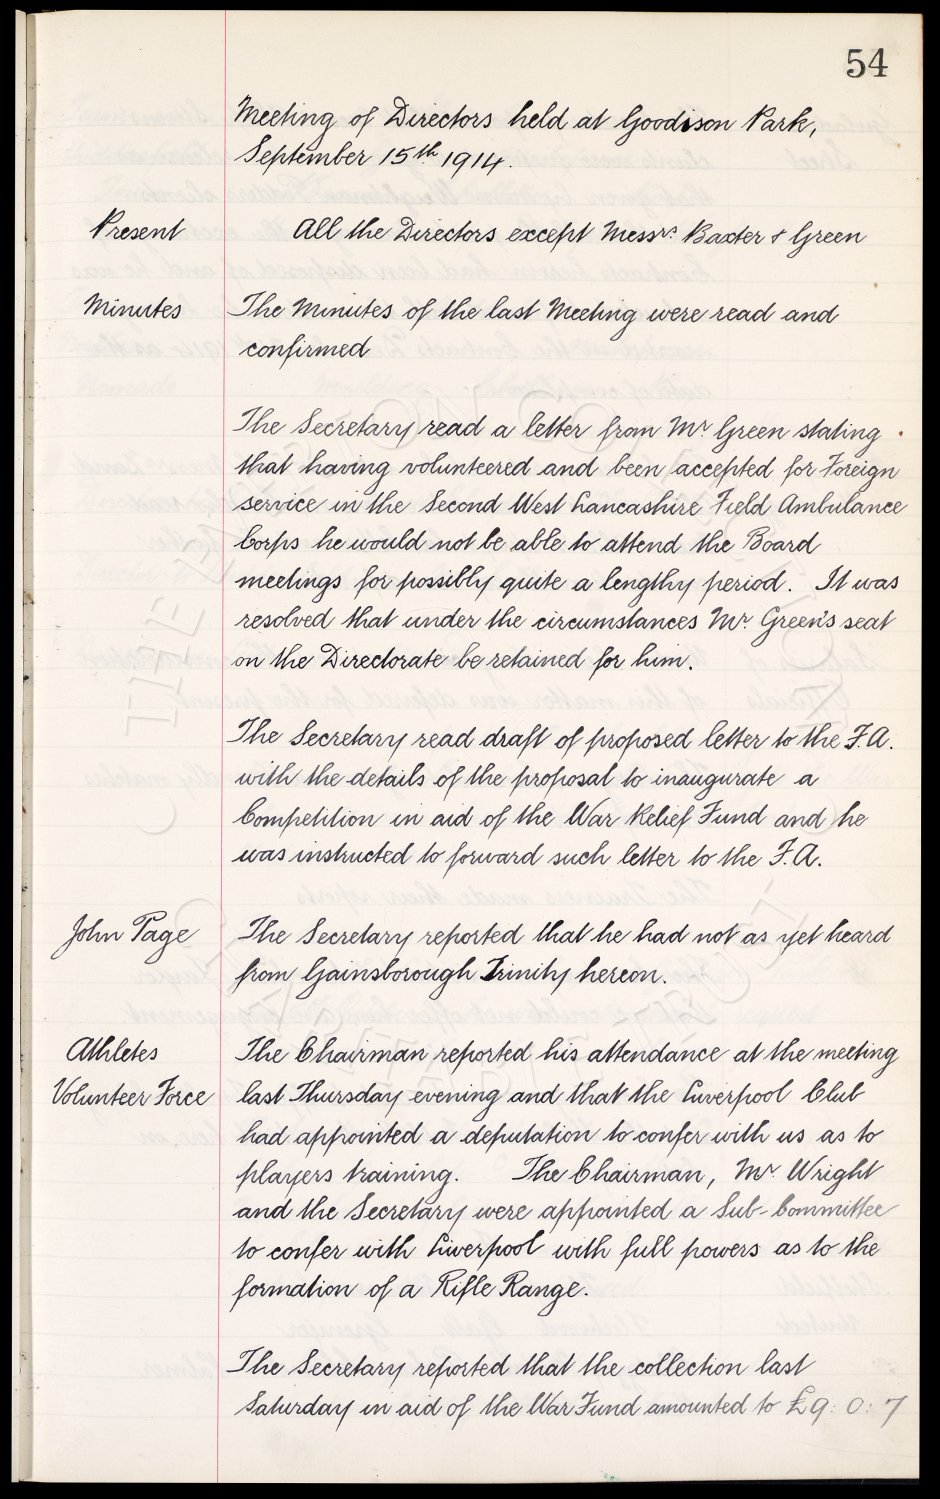 54
Meeting of Directors held at Goodison Park,
September 15th 1914.
Present All the Directors except Messrs Baxter & Green
Minutes The Minutes of the last Meeting were read and
confirmed
The Secretary read a letter from Mr. Green stating
that having volunteered and been accepted for Foreign
service in the Second West Lancashire Field Ambulance
Corps he would not be able to attend the Board
meetings for possibly quite a lengthy period. It was
resolved that under the circumstances Mr. Green's seat
on the Directorate be retained for him.
The Secretary read draft of proposed letter to the F.A.
with the details of the proposal to inaugurate a
Competition in aid of the War Relief Fund and he
was instructed to forward such letter to the F.A.
John Page The Secretary reported that he had not as yet heard
from Gainsborough Trinity hereon.
Athletes The Chairman reported his attendance at the meeting
Volunteer Force last Thursday evening and that the Liverpool Club
had appointed a deputation to confer with us as to
players training. The Chairman, Mr. Wright
and the Secretary were appointed a Sub-Committee
to confer with Liverpool with full powers as to the
formation of a Rifle Range.
The Secretary reported that the collection last
Saturday in aid of the War Fund amounted to £9: 0: 7